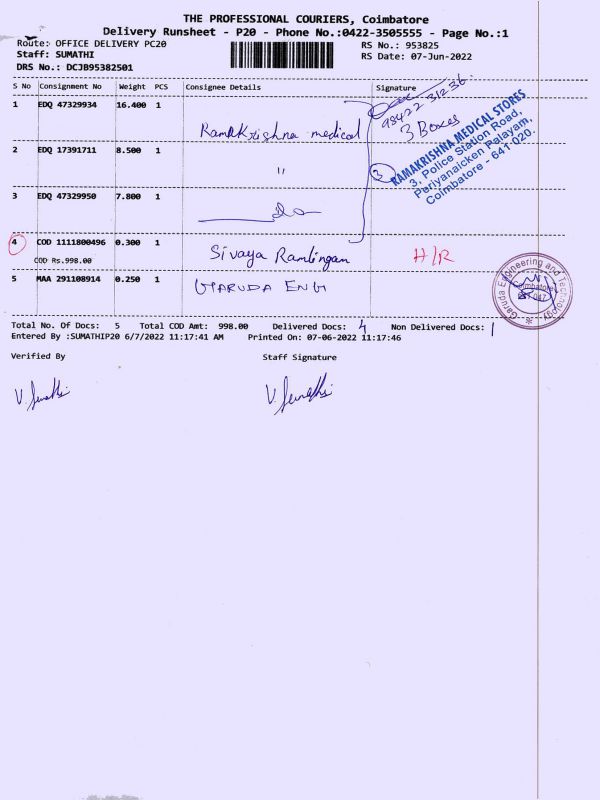 THE PROFESSIONAL COURIERS, Coimbatore
Delivery Runsheet - P20 - Phone No.:0422-3505555 - Page No.:1
Route: OFFICE DELIVERY PC20
RS No.: 953825
Staff: SUMATHI
RS Date: 07-Jun-2022
DRS No.: DCJB95382501
S No Consignment No Weight PCS Consignee Details Signature
98422 31236
3 Boxes
1 EDQ 47329934 16.400 1 Ramakrishna medical
RAMAKRISHNA MEDICAL STORES
3, Police Station Road,
Periyanaicken Palayam,
Coimbatore - 641-020.
2 EDQ 17391711 8.500 1 "
3
3 EDQ 47329950 7.800 1 Do
4 COD 1111800496 0.300 1 Sivaya Ramlingam H/R
COD Rs.998.00
5 MAA 291108914 0.250 1 GARUDA ENG
Garuda Engineering and Technology
Coimbatore
Total No. Of Docs: 5 Total COD Amt: 998.00 Delivered Docs: 4 Non Delivered Docs: 1
Entered By :SUMATHIP20 6/7/2022 11:17:41 AM Printed On: 07-06-2022 11:17:46
Verified By Staff Signature
V. Sumathi V. Sumathi